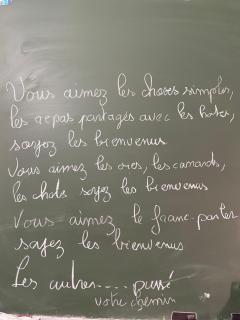 Vous aimez les choses simples,
les repas partagés avec les hôtes,
soyez les bienvenus
Vous aimez les oies, les canards,
les chats soyez les bienvenus
Vous aimez le franc-parler
soyez les bienvenus
Les autres.... passé
votre chemin